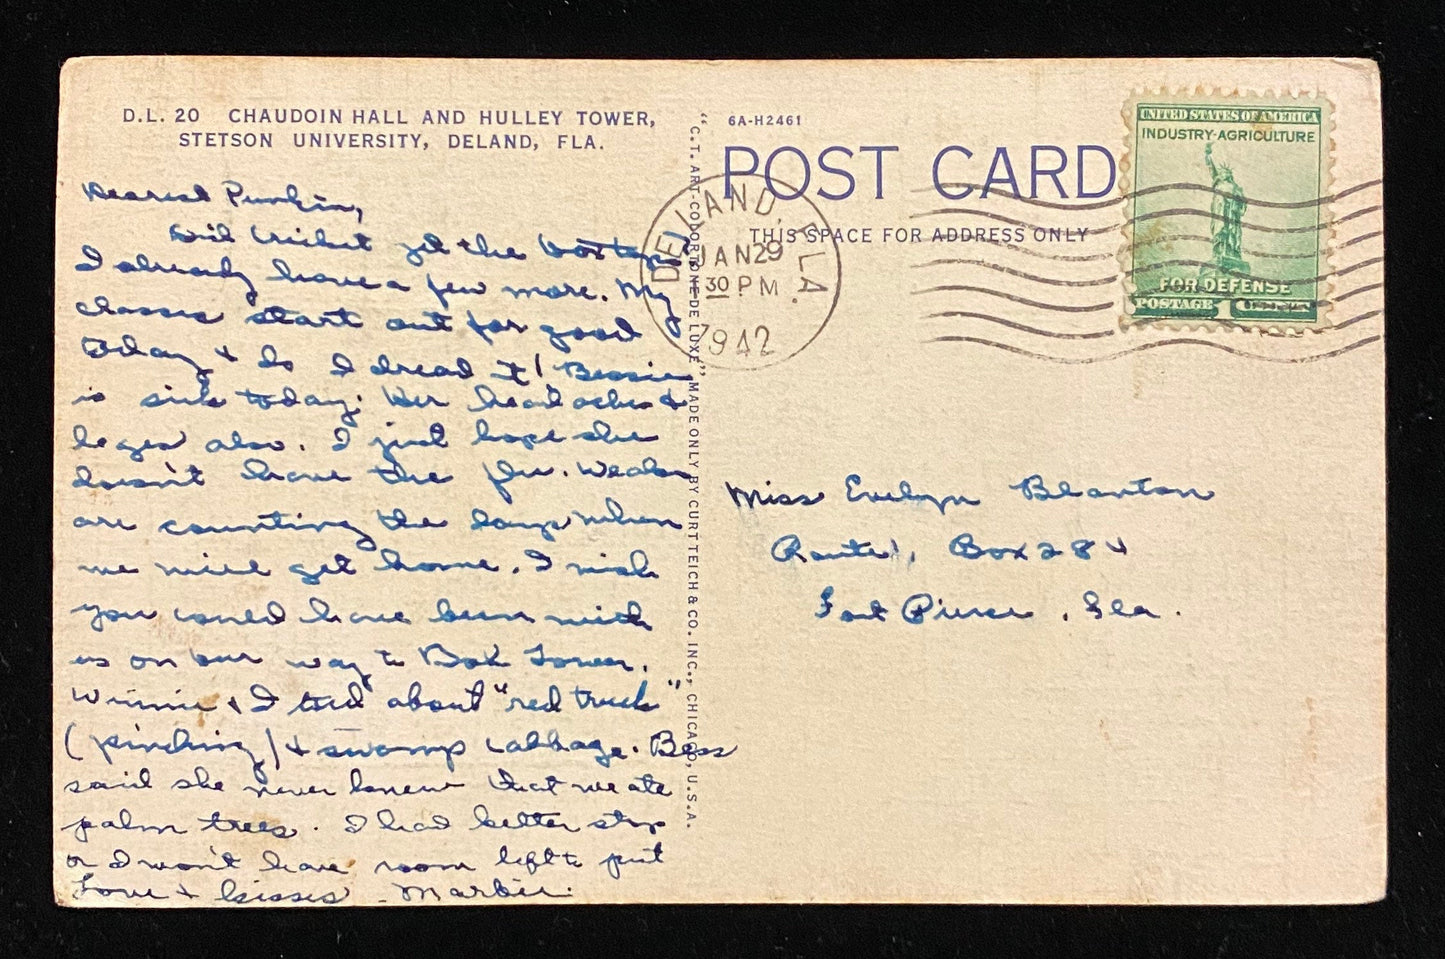 D.L. 20 CHAUDOIN HALL AND HULLEY TOWER,
STETSON UNIVERSITY, DELAND, FLA.
Dearest Punkin,
Did Cricket get the
I already have a few more. My
classes start out for good
today & do I dread it! Bessie
is sick today. Her head aches &
leges also. I just hope she
doesn't have the flu. We also
are counting the days when
we will get home. I wish
you could have been with
us on our way to Bok Tower.
Winnie & I told about "red truck"
(pinching) & swamp cabbage. Bess
said she never knew that we ate
palm trees. I had better stop
or I won't have room left to put
Love & kisses - Marbie.
"C.T. ART-COLORTONE DE LUXE" MADE ONLY BY CURT TEICH & CO. INC., CHICAGO, U.S.A.
6A-H2461
POST CARD
THIS SPACE FOR ADDRESS ONLY
DELAND, FLA.
JAN 29
30 PM
1942
UNITED STATES OF AMERICA
INDUSTRY-AGRICULTURE
FOR DEFENSE
POSTAGE 1 CENT
Miss Evelyn Blanton
Route 1, Box 284
Fort Pierce, Fla.